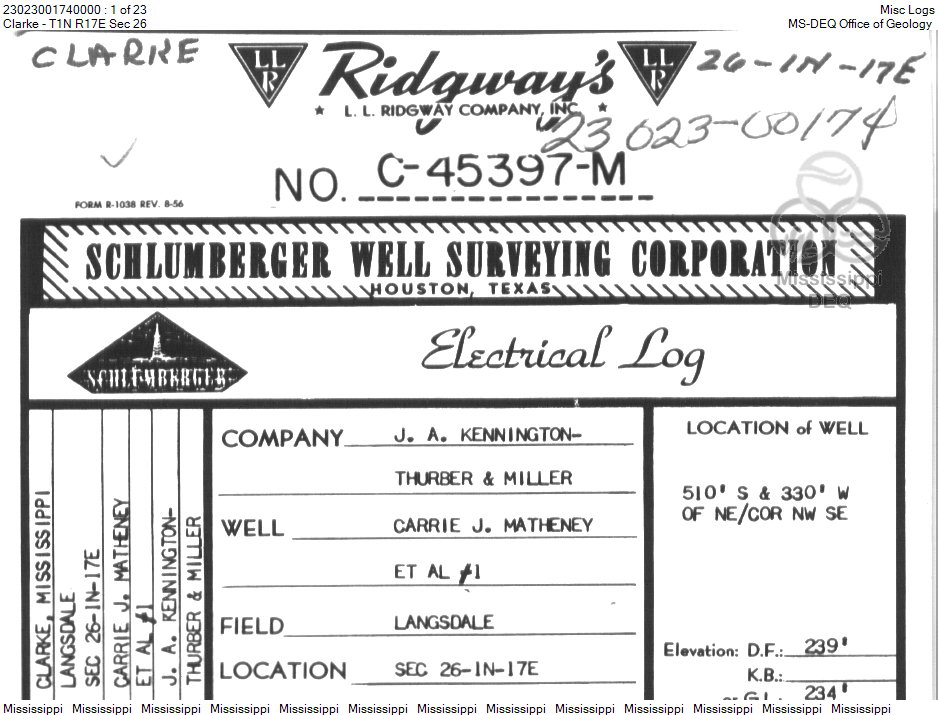 23023001740000 : 1 of 23
Misc Logs
Clarke - T1N R17E Sec 26
MS-DEQ Office of Geology
CLARKE
LLR
Ridgway's
LLR
26-1N-17E
L. L. RIDGWAY COMPANY, INC.
23 023-00174
NO. C-45397-M
FORM R-1038 REV. 8-56
SCHLUMBERGER WELL SURVEYING CORPORATION
HOUSTON, TEXAS
Mississippi
DEQ
SCHLUMBERGER
Electrical Log
CLARKE, MISSISSIPPI
LANGSDALE
SEC 26-1N-17E
CARRIE J. MATHENEY
ET AL #1
J. A. KENNINGTON-
THURBER & MILLER
COMPANY J. A. KENNINGTON-
THURBER & MILLER
WELL CARRIE J. MATHENEY
ET AL #1
FIELD LANGSDALE
LOCATION SEC 26-1N-17E
LOCATION of WELL
510' S & 330' W
OF NE/COR NW SE
Elevation: D.F.: 239'
K.B.:
or G.L.: 234'
Mississippi Mississippi Mississippi Mississippi Mississippi Mississippi Mississippi Mississippi Mississippi Mississippi Mississippi Mississippi Mississippi